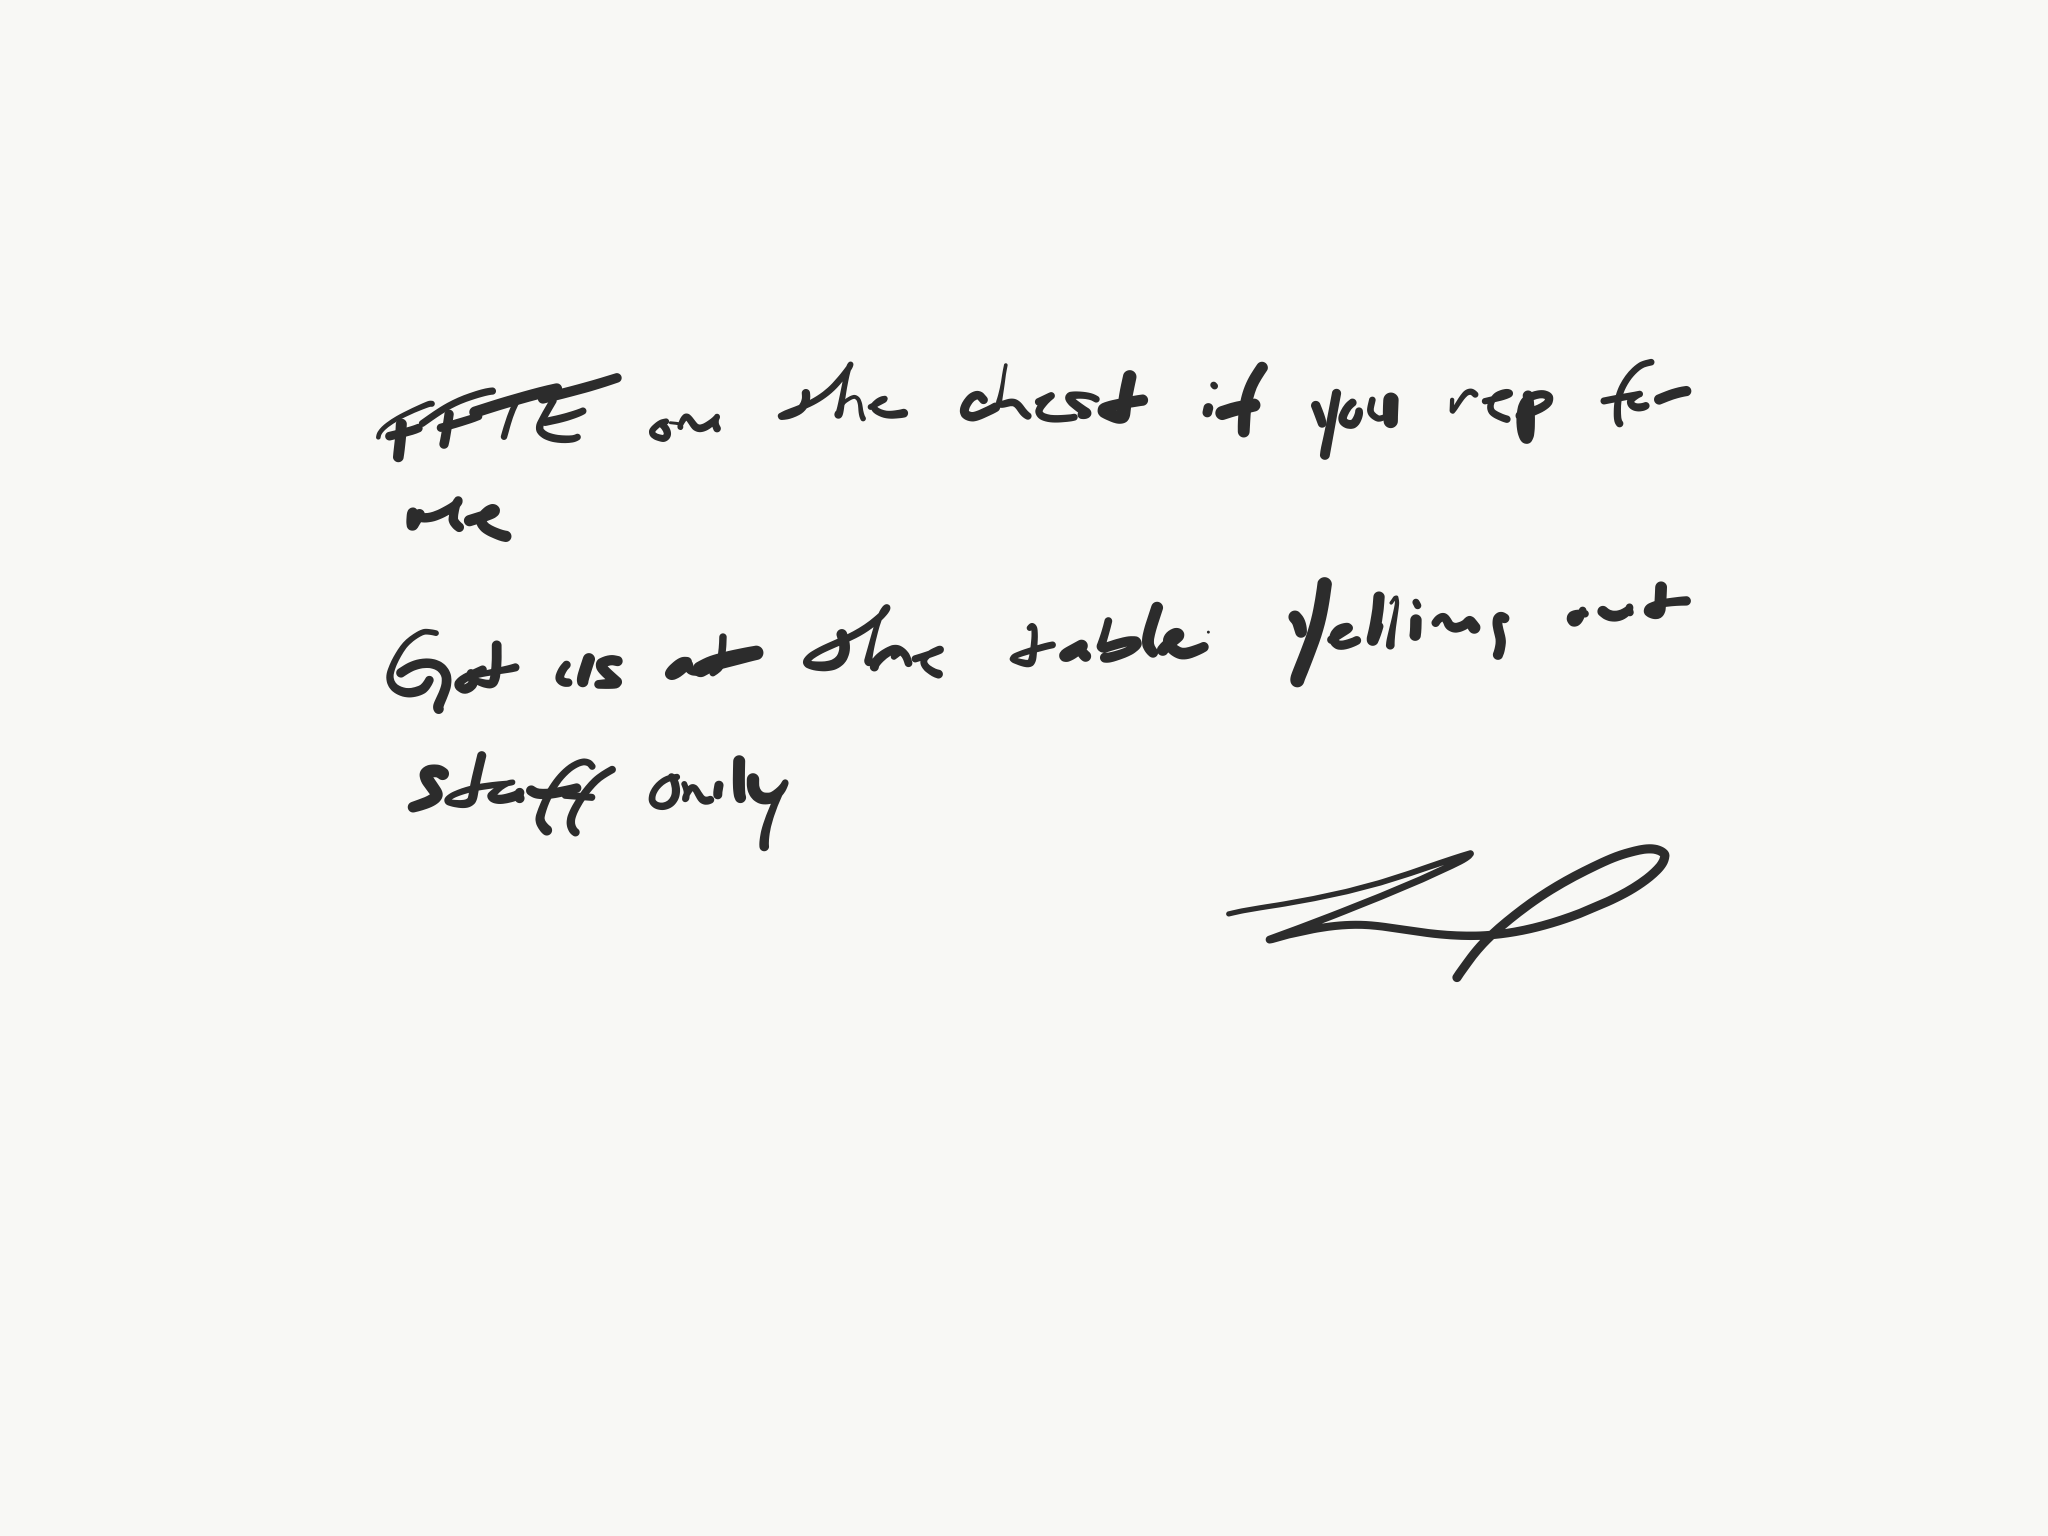 FFTE on the chest if you rep for
me
Got us at the table yelling out
staff only